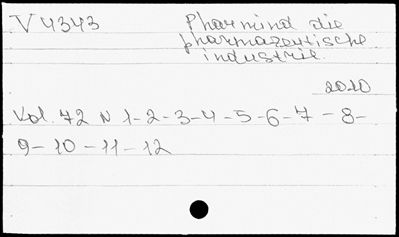 V 4343 Pharmind die
pharmazeutische
industrie.
2010
Vol. 72 N 1-2-3-4-5-6-7-8-
9-10-11-12